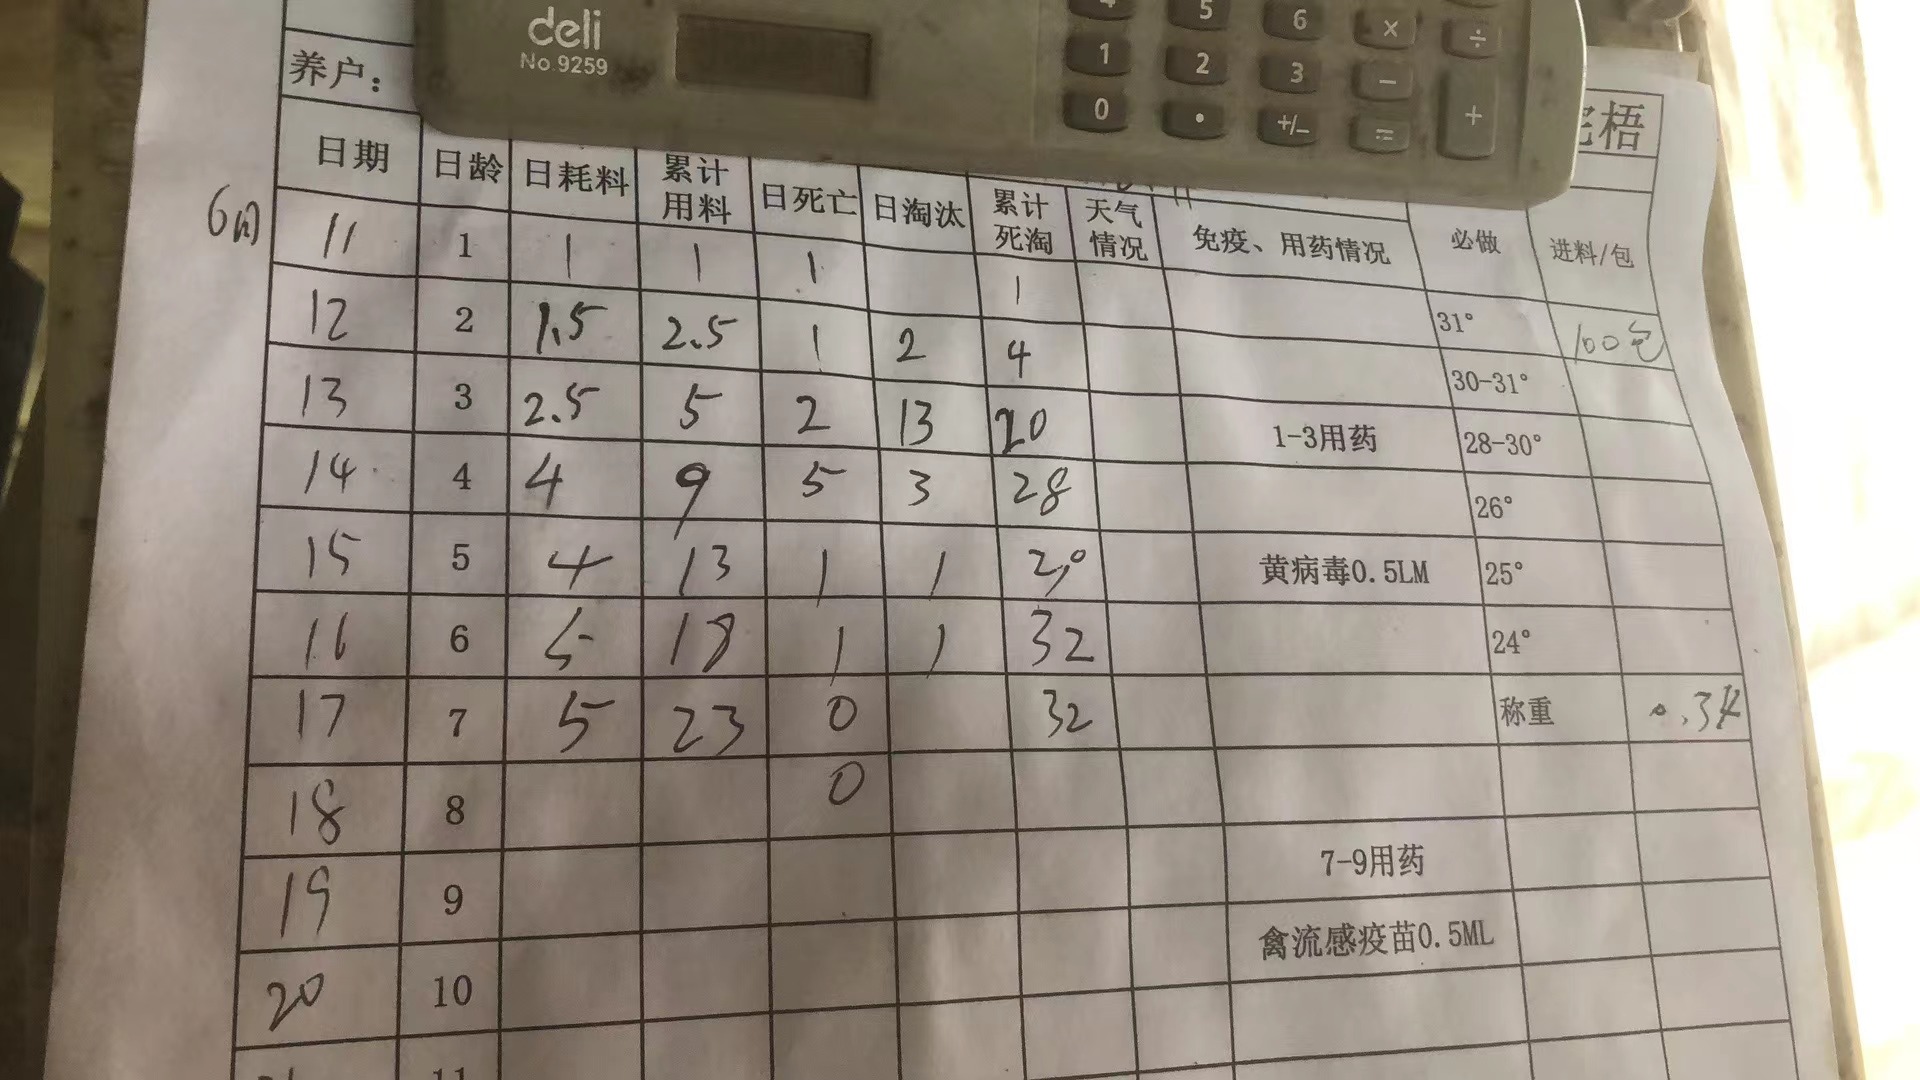 deli
No.9259
4 5 6 × ÷
1 2 3 −
0 • +/− = +
养户：
梧
日期 日龄 日耗料 累计用料 日死亡 日淘汰 累计死淘 天气情况 免疫、用药情况 必做 进料/包
6月 11 1 1 1 1 1 31°
12 2 1.5 2.5 1 2 4 30-31° 100包
13 3 2.5 5 2 13 20 1-3用药 28-30°
14 4 4 9 5 3 28 26°
15 5 4 13 1 1 黄病毒0.5LM 25°
16 6 5 18 1 1 32 24°
17 7 5 23 0 32 称重
18 8 0
19 9 7-9用药
20 10 禽流感疫苗0.5ML
11